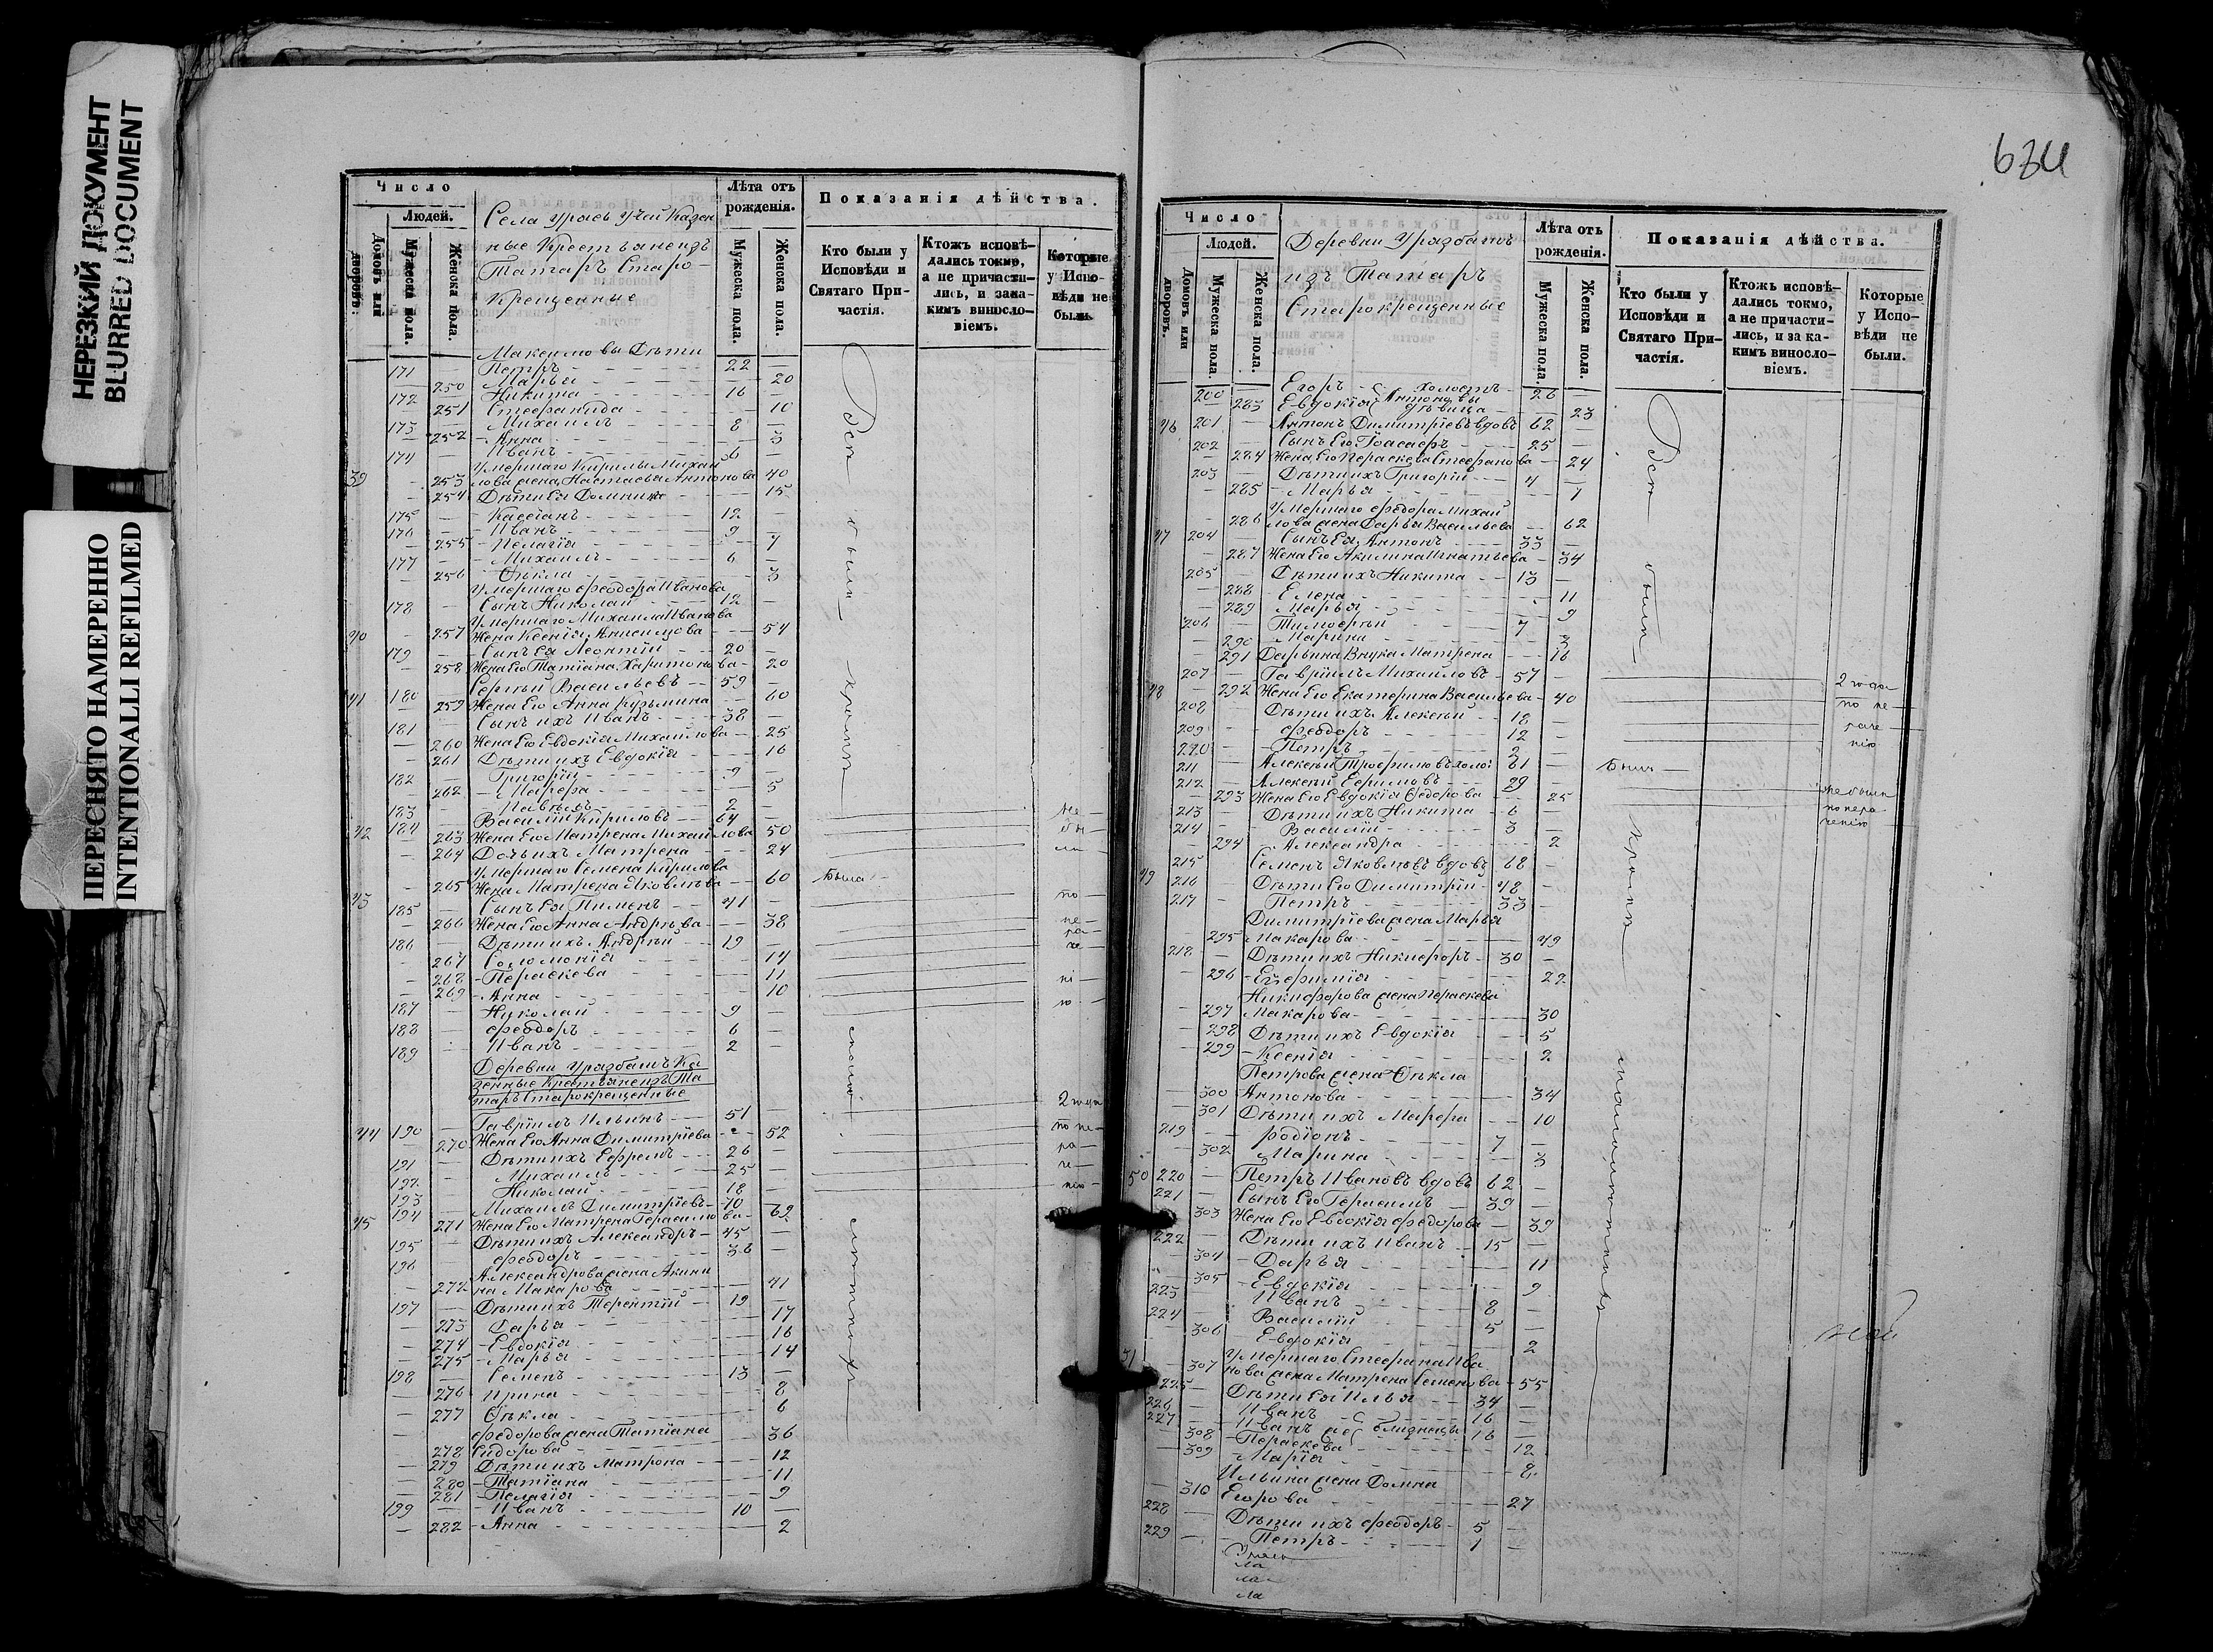 НЕРЕЗКИЙ ДОКУМЕНТ
BLURRED DOCUMENT
ПЕРЕСНЯТО НАМЕРЕННО
INTENTIONALLI REFILMED
Число
Людей.
Домовъ или дворовъ.
Мужеска пола.
Женска пола.
Села Урясь Учей Казен
ные Крестьяне изъ
Татаръ Старо-
Крещенные
Лѣта отъ рожденія.
Мужеска пола.
Женска пола.
Показанія дѣйства.
Кто были у Исповѣди и Святаго Причастія.
Ктожъ исповѣдались токмо, а не причастились, и за какимъ винословіемъ.
Которые у Исповѣди не были.
Максимовы Дѣти
171 Петръ 22
250 Марья 20
172 Никита 16
251 Стефанида 10
173 Михаилъ 8
252 Анна 3
174 Иванъ 6
Умершаго Кирилы Михай
39 253 лова жена Настасья Антонова 40
254 Дѣти Ея Домника 15
175 Кассіанъ 12
176 Иванъ 9
255 Пелагія 7
177 Михаилъ 6
256 Ѳекла 3
Умершаго Феодора Иванова
178 Сынъ Николай 12
Умершаго Михаила Иванова
40 257 Жена Ксенія Анисимова 54
179 Сынъ Ея Леонтій 20
258 Жена Его Татіана Харитонова 20
41 180 Сергѣй Васильевъ 59
259 Жена Его Анна Кузьмина 60
181 Сынъ ихъ Иванъ 38
260 Жена Его Евдокія Михайлова 25
261 Дѣти ихъ Евдокія 16
182 Григорій 9
262 Марфа 5
183 Павелъ 2
42 184 Василій Кириловъ 64
263 Жена Его Матрена Михайлова 50
264 Дочь ихъ Матрена 24
Умершаго Семена Кирилова
43 265 Жена Матрена Яковлѣва 60 Была
185 Сынъ Ея Пименъ 41
266 Жена Его Анна Андрѣева 38
186 Дѣти ихъ Андрѣй 19
267 Соломонія 14
268 Параскева 11
269 Анна 10
187 Николай 9
188 Феодоръ 6
189 Иванъ 2
Деревни Уразбашъ Ка
зенные Крестьяне изъ Та
таръ Старокрещенные
44 190 Гавріилъ Ильинъ 51
270 Жена Его Анна Димитріева 52
191 Дѣти ихъ Ефремъ 26
192 Михаилъ 25
193 Николай 18
45 194 Михаилъ Димитріевъ 70
271 Жена Его Матрена Герасимова 69
195 Дѣти ихъ Александръ 45
196 Феодоръ 36
Александрова жена Акили
272 на Макарова 41
197 Дѣти ихъ Терентій 19
273 Дарья 17
274 Евдокія 16
275 Марья 14
198 Семенъ 13
276 Ирина 8
277 Ѳекла 6
Федорова жена Татіана
278 Сидорова 36
279 Дѣти ихъ Матрона 12
280 Татіана 11
281 Пелагія 9
199 Иванъ 10
282 Анна 2
Всѣ были кромѣ
Число
Людей.
Домовъ или дворовъ.
Мужеска пола.
Женска пола.
Деревни Уразбашъ
изъ Татаръ
Старокрещенные
Лѣта отъ рожденія.
Мужеска пола.
Женска пола.
Показанія дѣйства.
Кто были у Исповѣди и Святаго Причастія.
Ктожъ исповѣдались токмо, а не причастились, и за какимъ винословіемъ.
Которые у Исповѣди не были.
200 Егоръ холостъ 26
283 Евдокія Антоновы дѣвица 23
46 201 Антонъ Димитріевъ вдовъ 62
202 Сынъ Его Іоасафъ 25
284 Жена Его Параскева Стефанова 24
203 Дѣти ихъ Григорій 4
285 Марья 1
Умершаго Федора Михай
286 лова жена Дарья Васильева 62
47 204 Сынъ Ея Антонъ 33
287 Жена Его Акилина Игнатьева 34
205 Дѣти ихъ Никита 13
288 Елена 11
289 Марья 9
206 Тимофей 7
290 Марина 3
291 Дарьина Внука Матрена 16
48 207 Гавріилъ Михайловъ 57
292 Жена Его Екатерина Васильева 40
208 Дѣти ихъ Алексѣй 18
209 Феодоръ 12
210 Петръ 2
211 Алексѣй Трофимовъ холо: 21 Былъ
212 Алексѣй Ефимовъ 29
293 Жена Его Евдокія Федорова 25
213 Дѣти ихъ Никита 6
214 Василій 3
294 Александра 2
49 215 Семенъ Яковлѣвъ вдовъ 68
216 Дѣти Его Димитрій 48
217 Петръ 33
Димитріева жена Марья
295 Макарова 49
218 Дѣти ихъ Никифоръ 30
296 Евфимія 22
Никифорова жена Параскева
297 Макарова 30
298 Дѣти ихъ Евдокія 5
299 Ксенія 2
Петрова жена Ѳекла
300 Антонова 34
301 Дѣти ихъ Марфа 10
219 Родіонъ 7
302 Марина 3
50 220 Петръ Ивановъ вдовъ 62
221 Сынъ Его Герасимъ 39
303 Жена Его Евдокія Федорова 39
222 Дѣти ихъ Иванъ 15
304 Дарья 11
305 Евдокія 9
223 Иванъ 8
224 Василій 5
306 Евдокія 2
51 Умершаго Стефана Ива
307 нова жена Матрена Семенова 55
225 Дѣти Ея Илья 34
226 Иванъ 16
227 Иванъ же близнецы 16
308 Параскева 12
309 Марія 8
Ильина жена Домна
310 Егорова 27
228 Дѣти ихъ Феодоръ 5
229 Петръ 1
Всѣ были кромѣ
не были
по нера
ченію